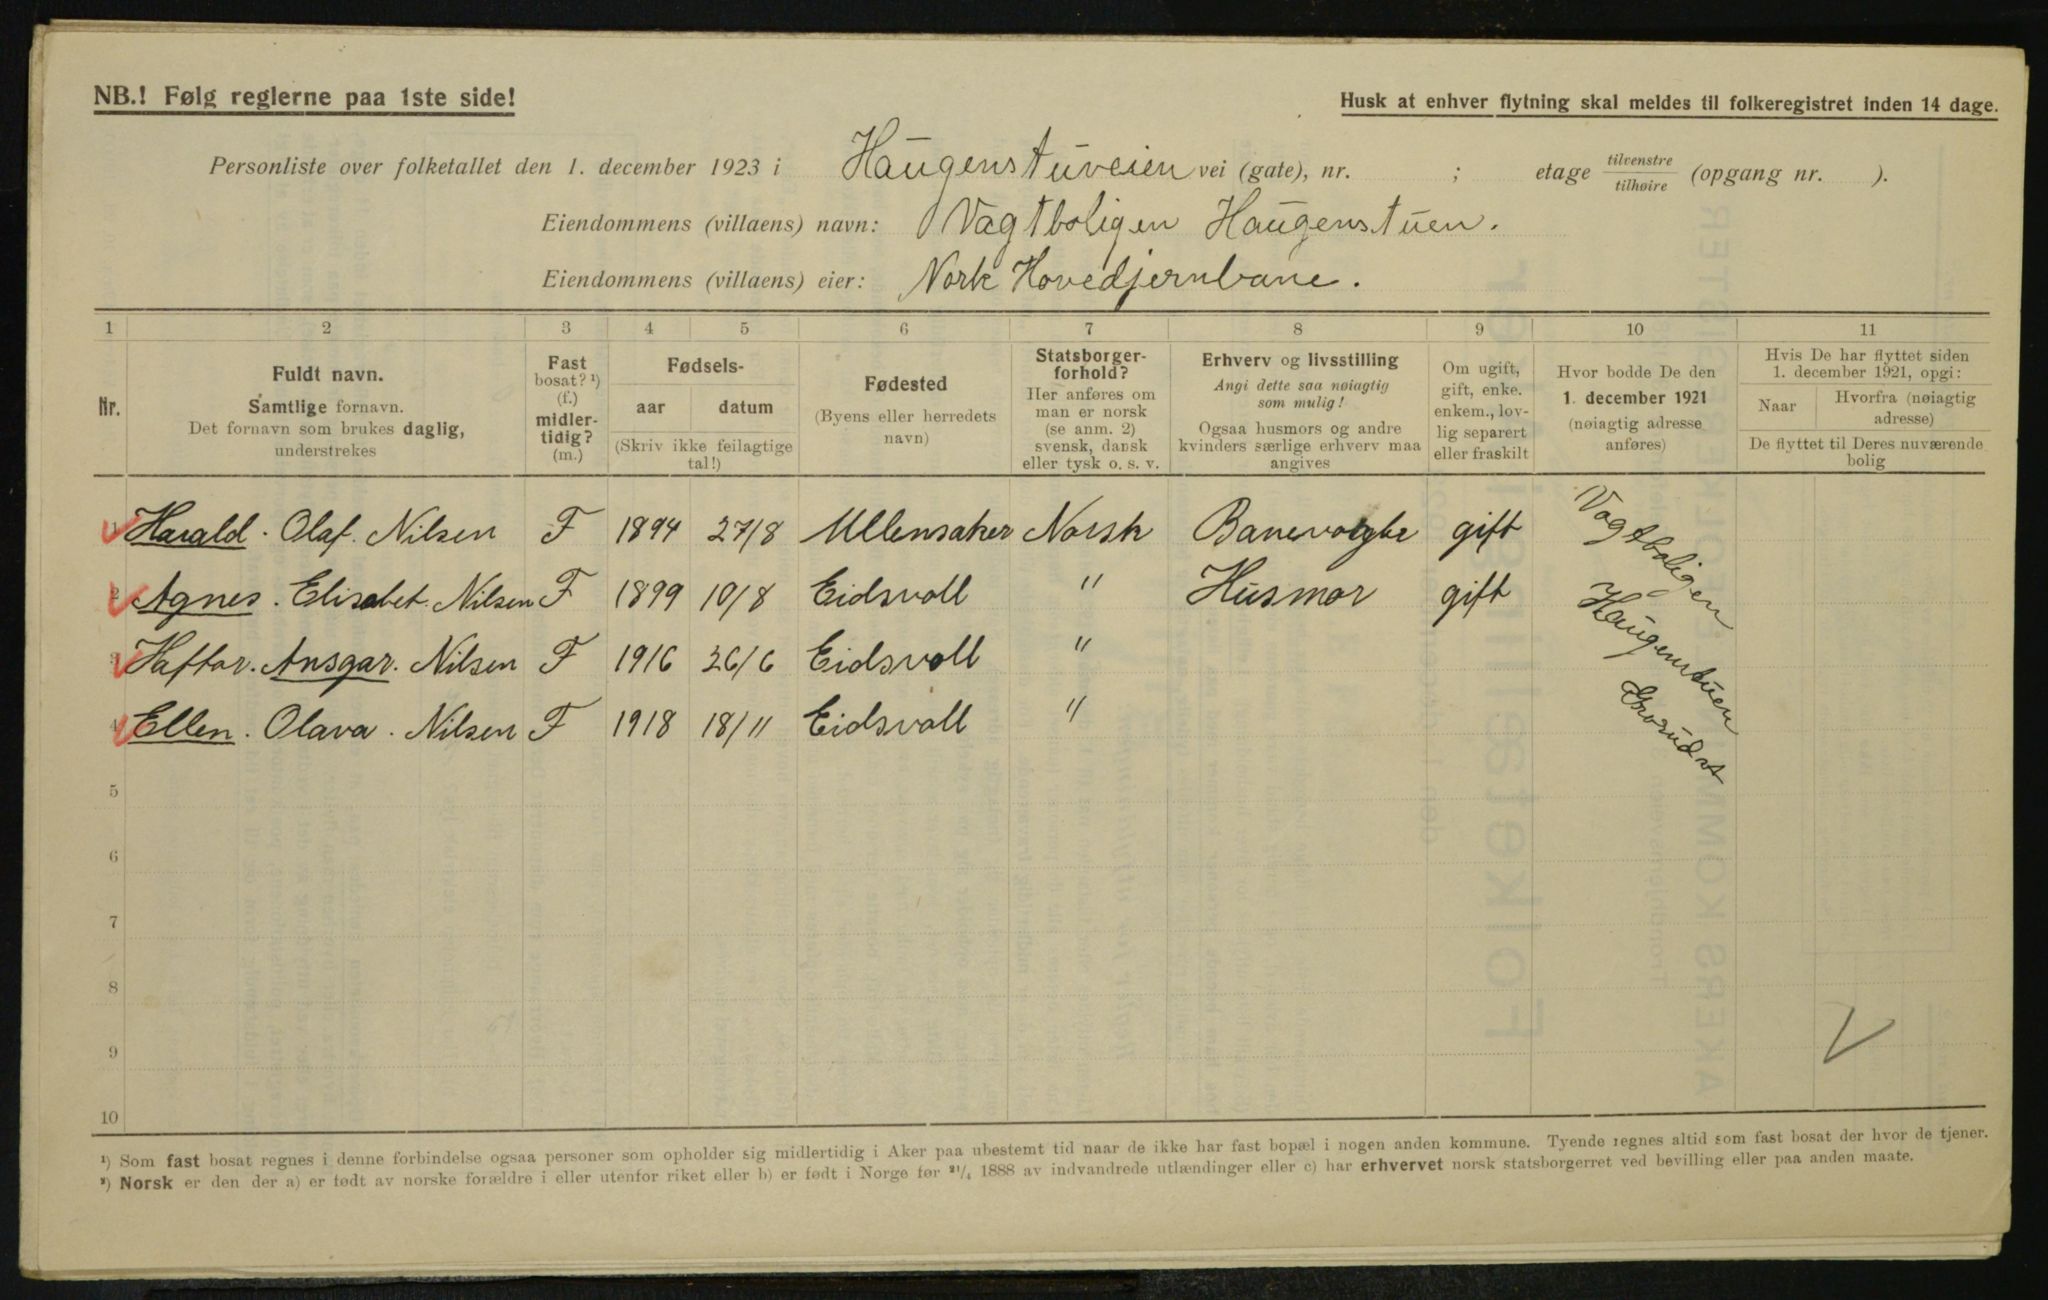 NB.! Følg reglerne paa 1ste side!
Husk at enhver flytning skal meldes til folkeregistret inden 14 dage.
Personliste over folketallet den 1. december 1923 i Haugenstuveien vei (gate), nr. ; etage tilvenstre/tilhøire (opgang nr. ).
Eiendommens (villaens) navn: Vagtboligen Haugenstuen.
Eiendommens (villaens) eier: Norsk Hovedjernbane.
1 2 3 4 5 6 7 8 9 10 11
Nr.
Fuldt navn.
Samtlige fornavn.
Det fornavn som brukes daglig,
understrekes
Fast
bosat? ¹)
(f.)
midler-
tidig?
(m.)
Fødsels-
aar datum
(Skriv ikke feilagtige
tal!)
Fødested
(Byens eller herredets
navn)
Statsborger-
forhold?
Her anføres om
man er norsk
(se anm. 2)
svensk, dansk
eller tysk o. s. v.
Erhverv og livsstilling
Angi dette saa nøiagtig
som mulig!
Ogsaa husmors og andre
kvinders særlige erhverv maa
angives
Om ugift,
gift, enke.
enkem., lov-
lig separert
eller fraskilt
Hvor bodde De den
1. december 1921
(nøiagtig adresse
anføres)
Hvis De har flyttet siden
1. december 1921, opgi:
Naar
Hvorfra (nøiagtig
adresse)
De flyttet til Deres nuværende
bolig
1 Harald. Olaf. Nilsen F 1894 27/8 Ullensaker Norsk Banevogte gift
2 Agnes. Elisabet. Nilsen F 1899 10/8 Eidsvoll " Husmor gift
3 Haftor. Ansgar. Nilsen F 1916 26/6 Eidsvoll "
4 Ellen. Olava. Nilsen F 1918 18/11 Eidsvoll "
Vagtboligen
Haugenstuen
Grorud st
5
6
7
8
9
10
¹) Som fast bosat regnes i denne forbindelse ogsaa personer som opholder sig midlertidig i Aker paa ubestemt tid naar de ikke har fast bopæl i nogen anden kommune. Tyende regnes altid som fast bosat der hvor de tjener.
²) Norsk er den der a) er født av norske forældre i eller utenfor riket eller b) er født i Norge før ²¹/₄ 1888 av indvandrede utlændinger eller c) har erhvervet norsk statsborgerret ved bevilling eller paa anden maate.